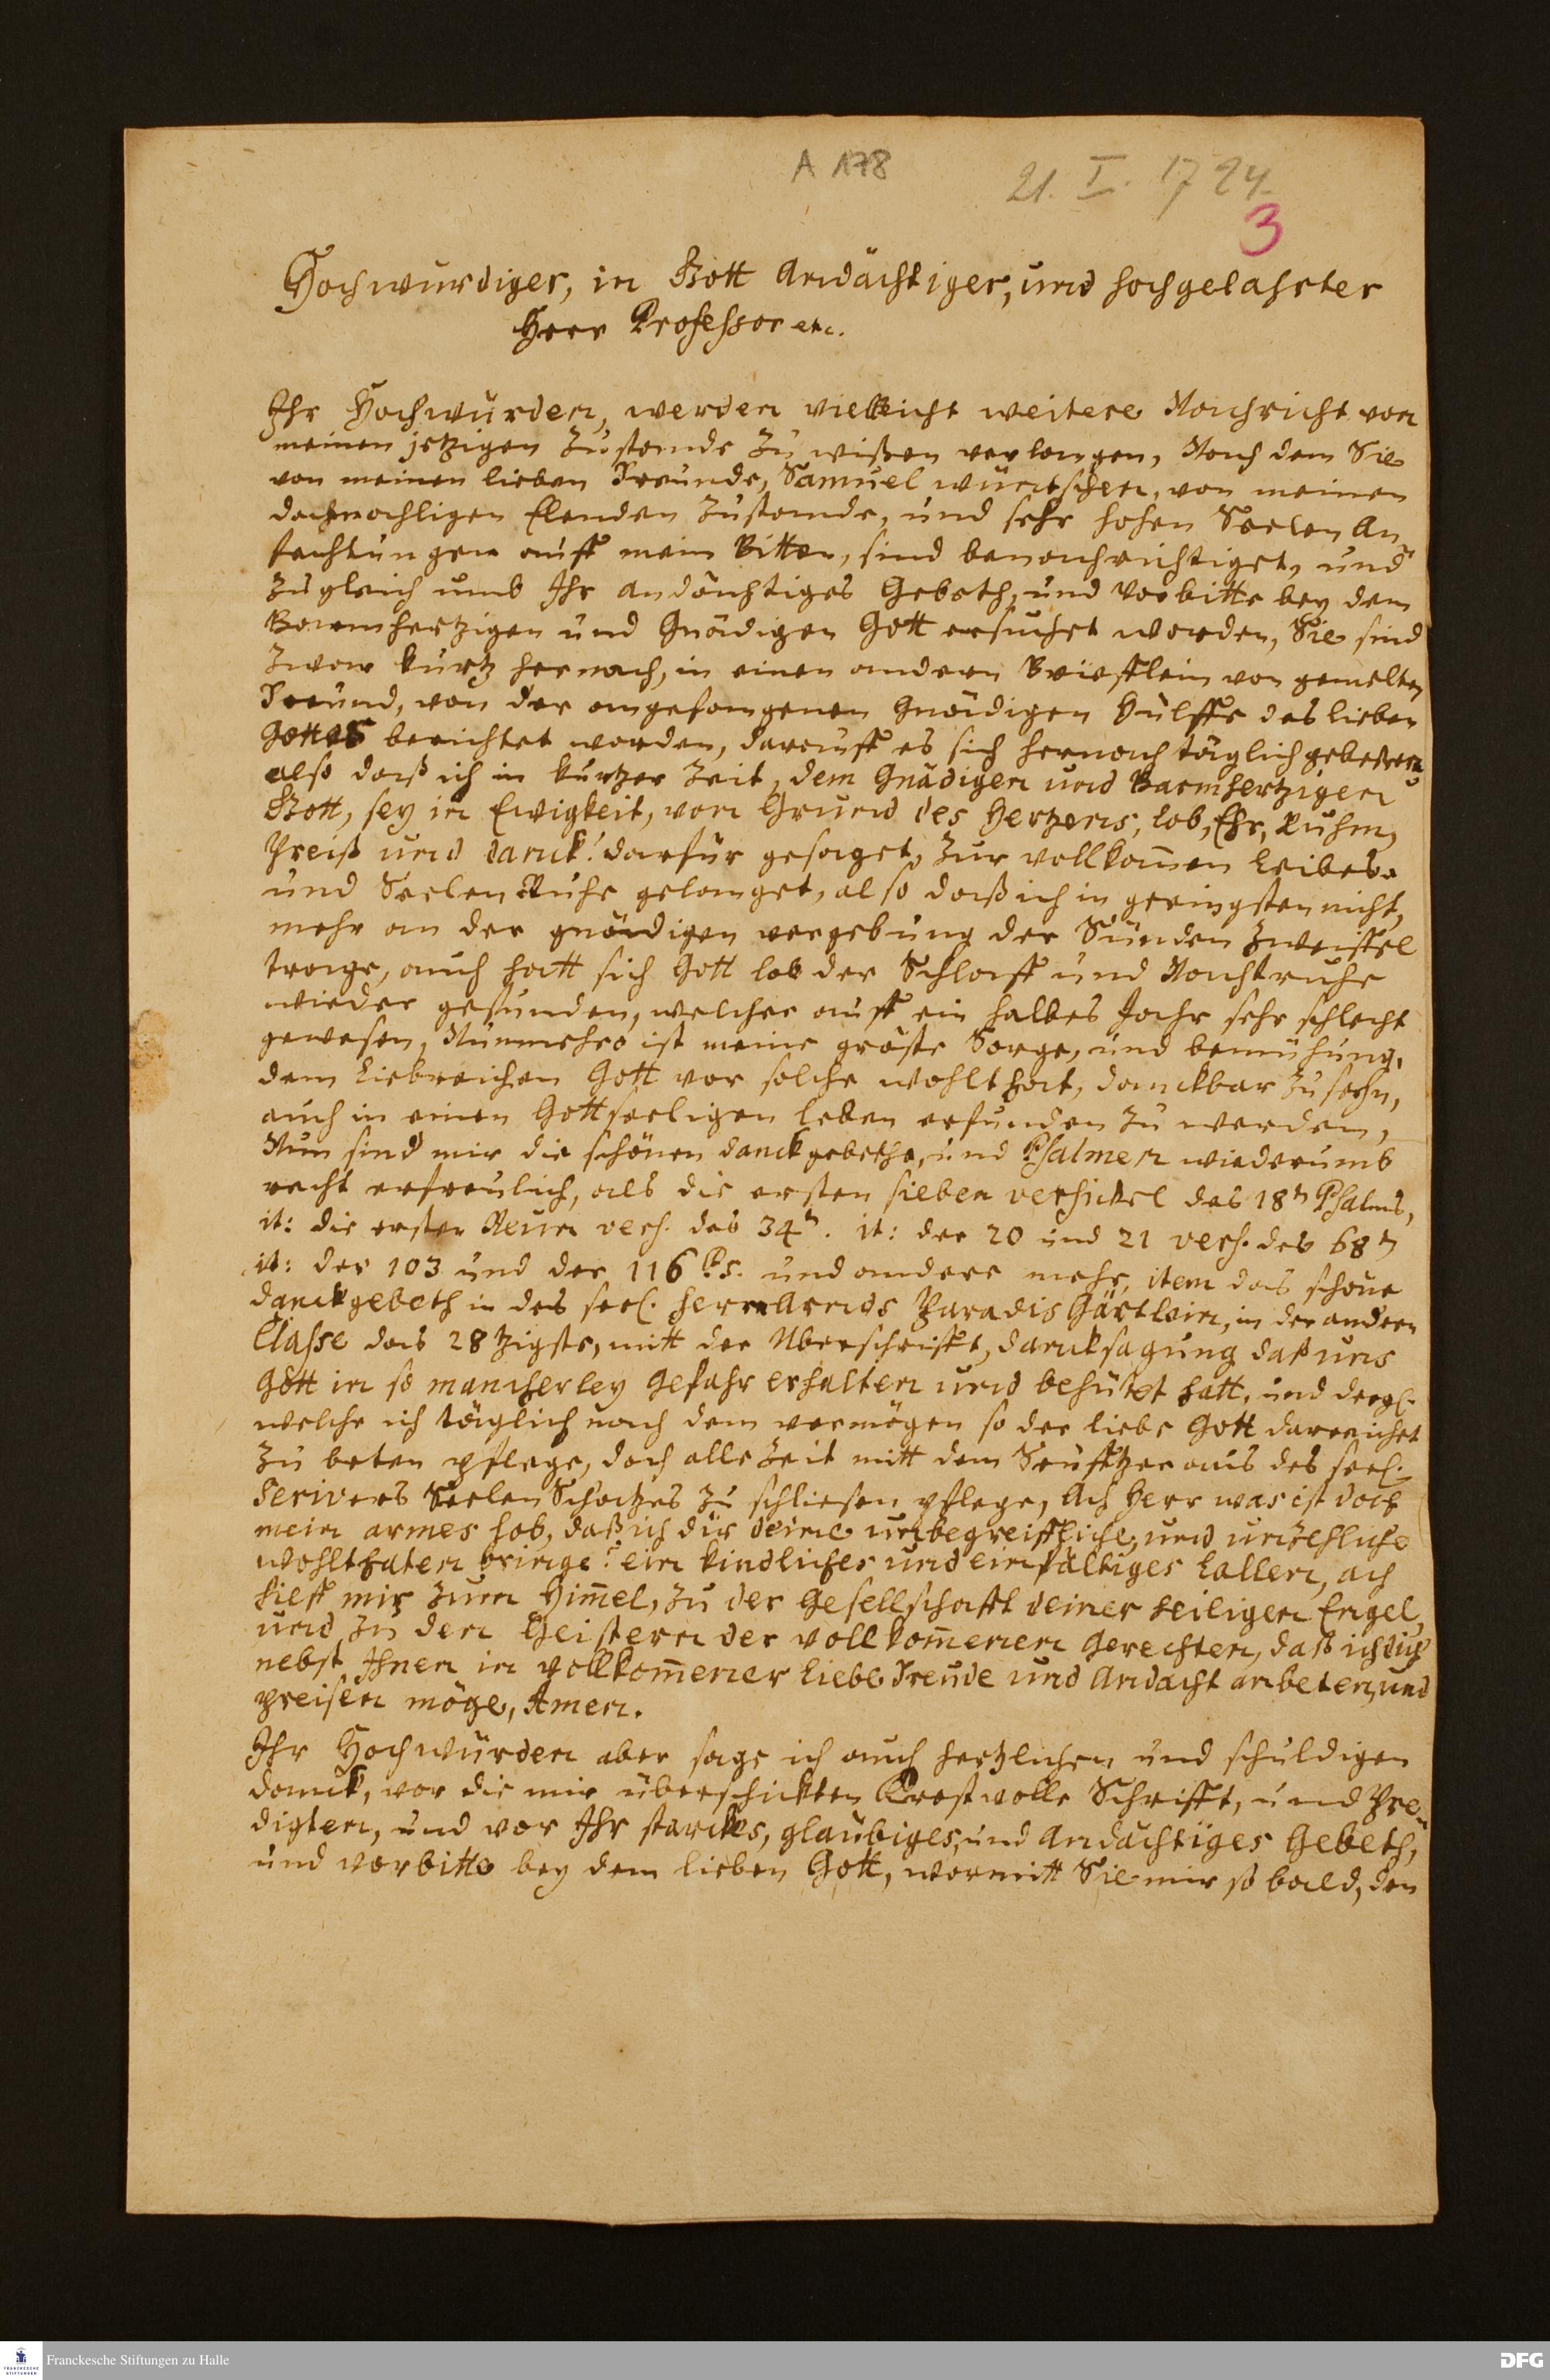 A 178
21. I. 1724
3
Hochwurdiger, in Gott Andächtiger, und hochgelahrter
Herr Professor etc.
Ihr Hochwürden, werden vielleicht weitere Nachricht von
meinen jetzigen Zustande zu wißen verlangen, Nach dem Sie
von meinen lieben Freunde, Samuel wüntschen, von meinen
dachmahligen Elenden Zustande, und sehr hohen Seelen An-
fechtungen auff mein Bitten, sind benachrichtiget, und
zugleich umb Ihr andächtiges Gebeth, und Vorbitte bey dem
Barmhertzigen und Gnädigen Gott ersuchet worden, Sie sind
zwar kurtz hernach, in einen andern Brieflein von gemelten
Freund, von der angefangenen Gnädigen Hülffe des lieben
Gottes berichtet worden, darauff es sich hernach täglich gebeßert,
also daß ich in kurtzer Zeit, dem Gnädigen und Barmhertzigen
Gott, sey in Ewigkeit, von Grund des Hertzens, lob, Ehr, Ruhm,
Preiß und danck! darfür gesaget, zur vollkom̄en Leibes-
und Seelen Ruhe gelanget, also daß ich in geringsten nicht,
mehr an der gnädigen vergebung der Sünden zweiffel
trage, auch hatt sich Gott lob der Schlaff und Nachtruhe
wieder gefunden, welcher auff ein halbes Jahr sehr schlecht
gewesen, Nunmehro ist meine gröste Sorge, und bemühung,
dem Liebreichen Gott vor solche wohlthat, danckbar zu sehn,
auch in einen Gottseeligen leben erfunden zu werden,
Nun sind mir die schönen danckgebethe, und Psalmen wiederumb
recht erfreulich, als die ersten sieben versickel des 18tn Psalms,
it: die ersten Neun vers. des 34tn. it: der 20 und 21 vers. des 68tn
it: der 103 und der 116 Ps. und andere mehr, item das schöne
danckgebeth in des seel. herrn Arnds Paradis Gärtlein, in der andern
Classe das 28 zigste, mitt der Uberschrifft, dancksagung daß uns
Gott in so mancherley Gefahr erhalten und behütet hatt, und dergl.
welche ich täglich nach dem vermögen so der liebe Gott darreichet
zu beten pflege, doch alle Zeit mitt dem Seufftzer aus des seel.
Scrivers Seelen Schatzes zu schliesen pflege, Ach Herr was ist doch
mein armes lob, daß ich dir deine unbegreiffliche, und unzehliche
wohlthaten bringe? ein kindliches und einfältiges lallen, ach
hieff mir zum Him̄el, zu der Gesellschafft deiner heiligen Engel,
und zu den Geistern der vollkom̄enen Gerechten, daß ich dich
nebst Ihnen in vollkom̄ener Liebe Freude und Andacht anbeten, und
preisen möge, Amen.
Ihr Hochwürden aber sage ich auch hertzlichen und schuldigen
danck, vor die mir überschickten Trostvolle Schrifft, und Pre-
digten, und vor Ihr starckes, glaubiges, und Andächtiges Gebeth,
und vorbitte bey dem lieben Gott, wormitt Sie mir so bald, den
Franckesche Stiftungen zu Halle
DFG